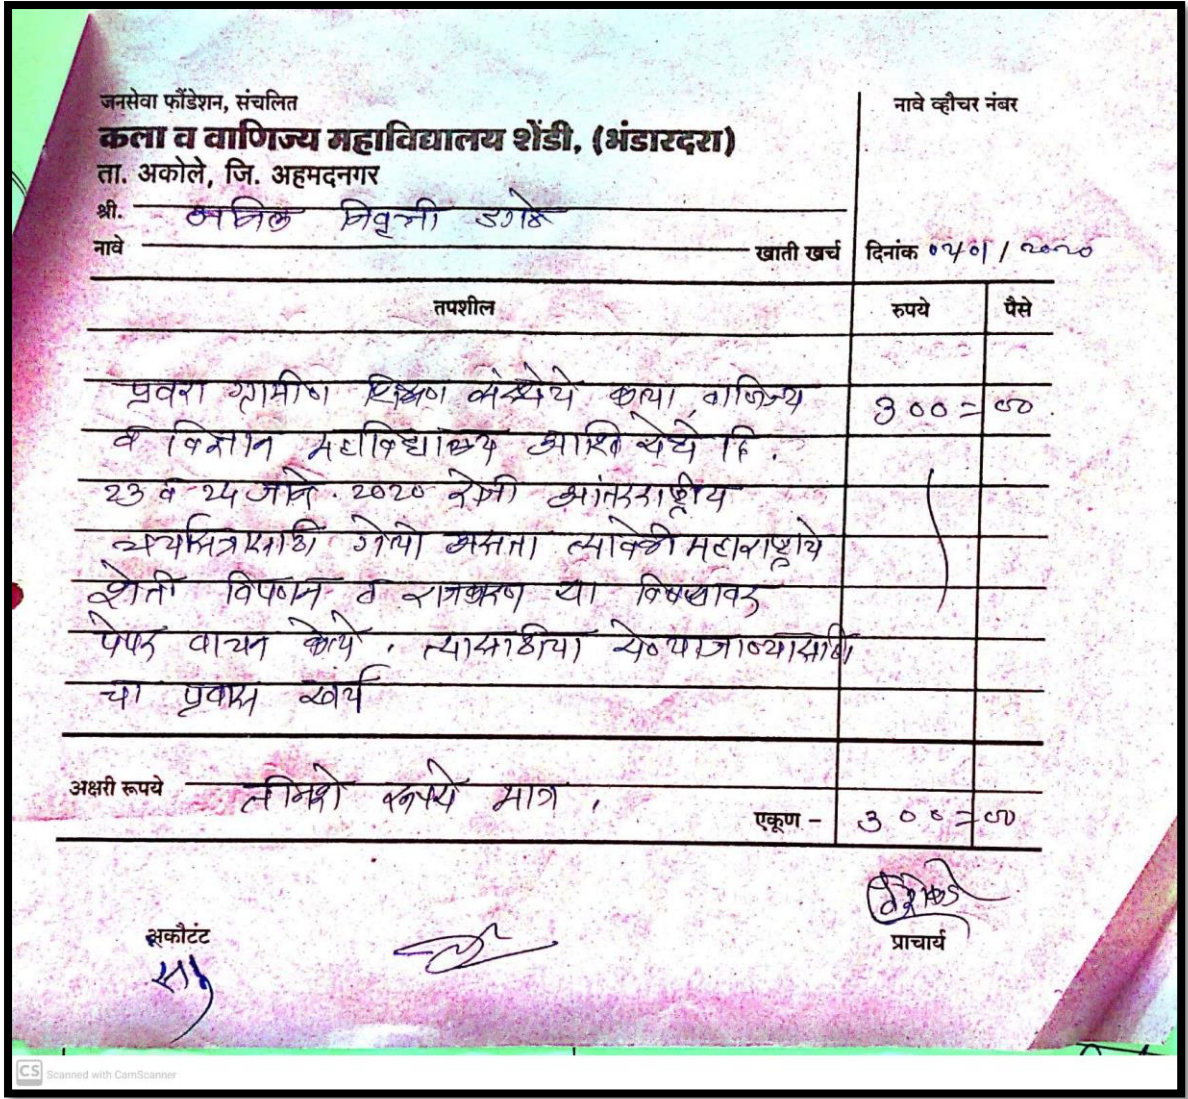 जनसेवा फौंडेशन, संचलित
नावे व्हौचर नंबर
कला व वाणिज्य महाविद्यालय शेंडी, (भंडारदरा)
ता. अकोले, जि. अहमदनगर
श्री. अनिल निवृत्ती
नावे खाती खर्च दिनांक / 2020
तपशील रुपये पैसे
प्रवरा ग्रामीण शिक्षण संस्थेचे कला, वाणिज्य 300=00
व विज्ञान महाविद्यालय आश्वि येथे दि.
23 व 24 जाने. 2020 रोजी आंतरराष्ट्रीय
चर्चासत्रासाठी गेलो असता त्यावेळी महाराष्ट्राचे
शेती विपणन व राजकारण या विषयावर
पेपर वाचन केले. त्यासाठीचा येण्याजाण्यासाठी
चा प्रवास खर्च
अक्षरी रूपये तीनशे रूपये मात्र.
एकूण – 300=00
अकौटंट
प्राचार्य
CS Scanned with CamScanner